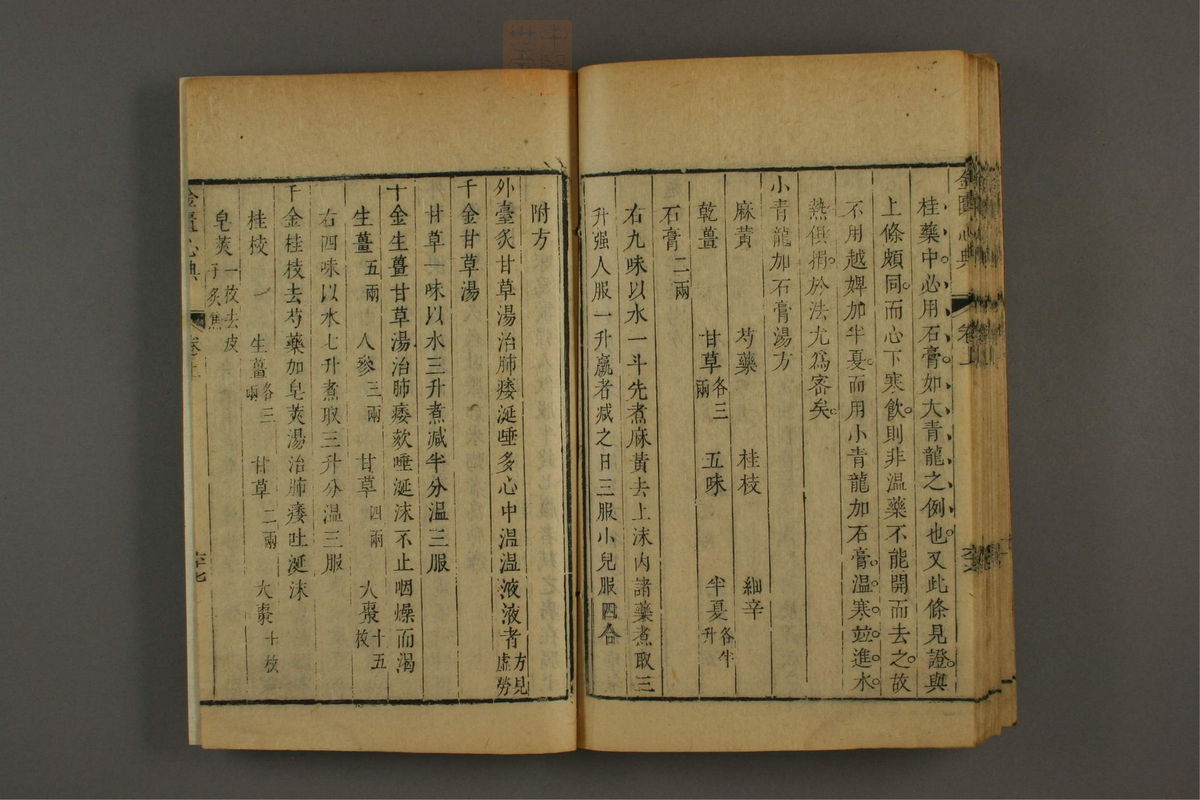 桂藥中必用石膏如大青龍之例也又此條見證與
上條頗同而心下寒飲則非溫藥不能開而去之故
不用越婢加半夏而用小青龍加石膏溫寒竝進水
熱俱捐於法尤爲密矣
小青龍加石膏湯方
麻黃 芍藥 桂枝 細辛
乾薑 甘草各三兩 五味 半夏各半升
石膏二兩
右九味以水一斗先煮麻黃去上沫內諸藥煮取三
升强人服一升羸者減之日三服小兒服四合
附方
外臺炙甘草湯治肺痿涎唾多心中溫溫液液者方見虛勞
千金甘草湯
甘草一味以水三升煮減半分溫三服
千金生薑甘草湯治肺痿欬唾涎沫不止咽燥而渴
生薑五兩 人參三兩 甘草四兩 大棗十五枚
右四味以水七升煮取三升分溫三服
千金桂枝去芍藥加皂莢湯治肺痿吐涎沫
桂枝 生薑各三兩 甘草二兩 大棗十枚
皂莢一枚去皮子炙焦
金匱心典 卷上